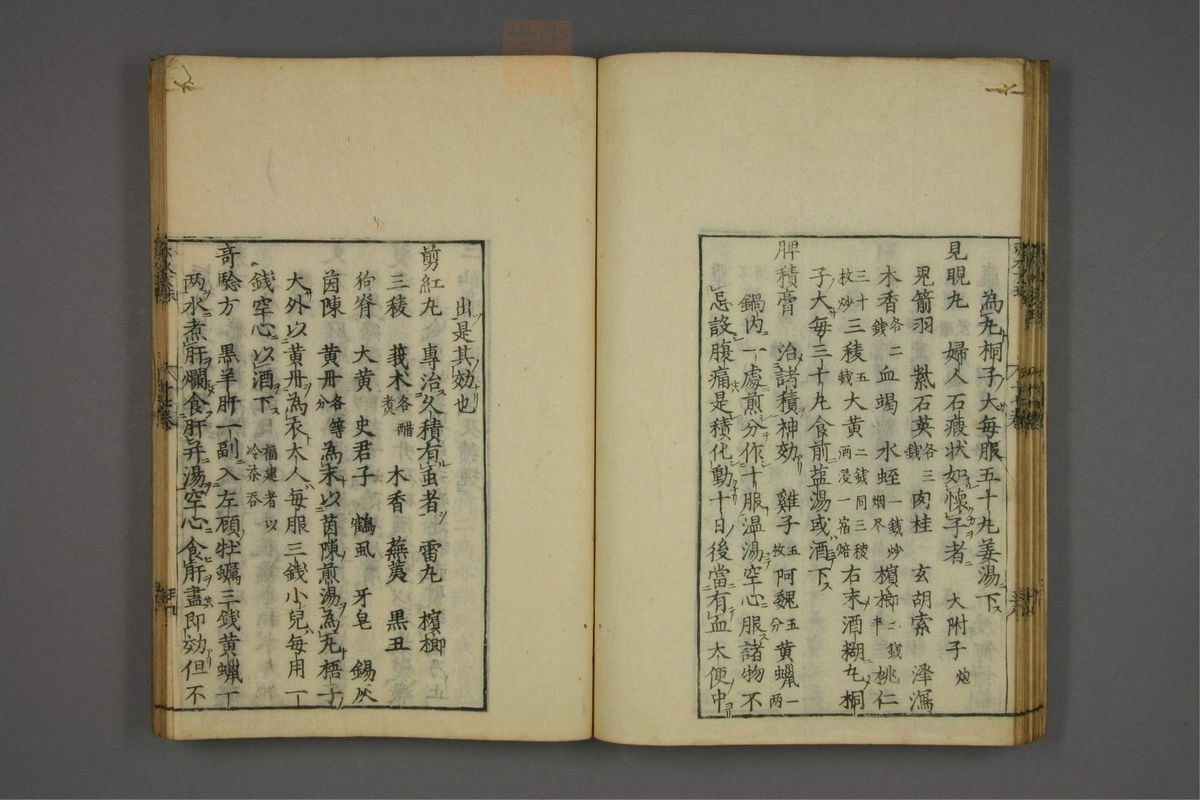 為丸桐子大每服五十丸姜湯下
見晛丸 婦人石瘕狀如懷子者 大附子炮
鬼箭羽 紫石英各三錢 肉桂 玄胡索 澤瀉
木香各二錢 血竭 水蛭一錢炒烟尽 檳榔二錢半 桃仁
三十枚炒 三稜五錢 大黃二錢同三稜酒浸一宿焙 右末酒糊丸桐
子大每三十丸食前盐湯或酒下
脾積膏 治諸積神効 雞子五枚 阿魏五分 黃蠟一兩
鍋內一處煎分作十服温湯空心服諸物不
忌設腹痛是積化動十日後當有血大便中
出是其効也
剪紅丸 專治久積有虫者 雷丸 檳榔
三稜 莪术各醋煮 木香 蕪荑 黑丑
狗脊 大黃 史君子 鶴虱 牙皂 錫灰
茵陳 黃丹各等分 為末以茵陳煎湯為丸梧子
大外以黃丹為衣大人每服三錢小兒每用一
錢空心以酒下 福建者以冷茶吞
奇驗方 黑羊肝一副入左顧牡蠣三錢黃蠟一
两水煮肝爛食肝并湯空心食肝盡即効但不